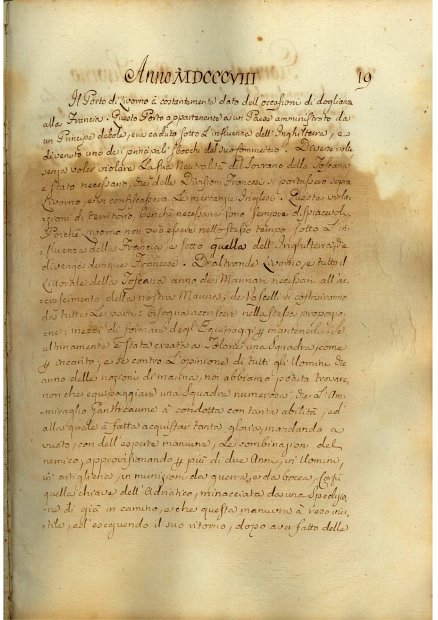 Anno MDCCCVIII 19
Il Porto di Livorno à costantemente dato dell'occasioni di doglianze
alla Francia. Questo Porto appartenente a un Paese amministrato da
un Principe debole, era caduto sotto l'influenza dell'Inghilterra, e
divenuto uno dei principali sbocchi del suo commercio.
senza voler violare la sua Neutralità del Sovrano della Toscana
è stato necessario, che delle Divisioni Francesi si portassero sopra
Livorno, e vi confiscassero le mercanzie Inglesi. Queste viola-
zioni di territorio, benche necessarie sono sempre dispiacevoli.
Poichè Livorno non può essere nello stesso tempo sotto l'in-
fluenza della Francia, e sotto quella dell'Inghilterra,
divenga dunque Francese. D'altronde Livorno, e tutto il
Littorale della Toscana anno dei Marinari necessari all'ac-
crescimento della nostra Marina; de Vascelli si costruiranno
da tutte le parti; bisogna accrescere nella stessa proporzio-
ne i mezzi di formare degl'Equipaggi p mantenerli. Se
ultimamente è stata creata a Tolone una Squadra, come
p incanto, e se contro l'opinione di tutti gli Uomini che
anno delle nozioni di marina, noi abbiamo potuto trovare,
non che equipaggiare una Squadra numerosa; che l'Am-
miraglio Gantheaume à condotta con tanta abilità, ed
alla quale à fatto acquistar tanta gloria, mandando a
vuoto, con dell'esperte manuvre, le combinazioni del
nemico, approvisionando p più di due Anni, in Uomini,
in artiglieria, in munizioni da guerra, e da bocca, Corfù
quella chiave dell'Adriatico, minacciata da una Spedizio-
ne di già in camino, e che questa manuvra à reso inu-
tile, ed eseguendo il suo ritorno, dopo aver fatto delle